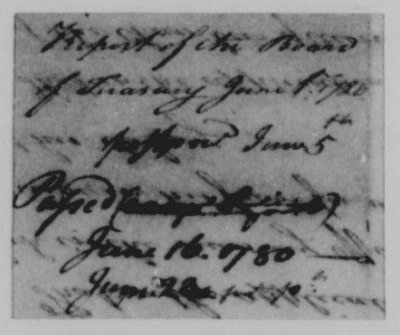 Report of the Board
of Treasury June 1st. 1780
postpond June 5th
Passed
June 16. 1780
June